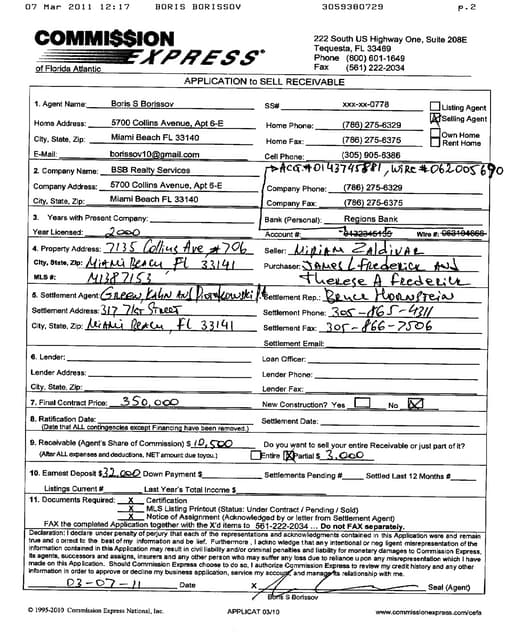 07 Mar 2011 12:17 BORIS BORISSOV 3059380729 p.2
COMMISSION EXPRESS®
of Florida Atlantic
222 South US Highway One, Suite 208E
Tequesta, FL 33469
Phone (800) 601-1649
Fax (561) 222-2034
APPLICATION to SELL RECEIVABLE
1. Agent Name: Boris S Borissov SS# xxx-xx-0778 Listing Agent
Selling Agent
Home Address: 5700 Collins Avenue, Apt 6-E Home Phone: (786) 275-6329 Own Home
City, State, Zip: Miami Beach FL 33140 Home Fax: (786) 275-6375 Rent Home
E-Mail: borissov10@gmail.com Cell Phone: (305) 905-6386
2. Company Name: BSB Realty Services ACC. #0143745881, WIRE #062005690
Company Address: 5700 Collins Avenue, Apt 6-E Company Phone: (786) 275-6329
City, State, Zip: Miami Beach FL 33140 Company Fax: (786) 275-6375
3. Years with Present Company: Bank (Personal): Regions Bank
Year Licensed: 2000 Account#: Wire #:
4. Property Address: 7135 Collins Ave, #706 Seller: Miriam Zaldivar
City, State, Zip: Miami Beach, FL 33141 Purchaser: James L Frederick and
MLS #: M1387153 Therese A Frederick
5. Settlement Agent: Green, Kahn and Piotrkowski Settlement Rep.: Bruce Hornstein
Settlement Address: 317 71st Street Settlement Phone: 305-865-4311
City, State, Zip: Miami Beach, FL 33141 Settlement Fax: 305-866-7506
Settlement Email:
6. Lender: Loan Officer:
Lender Address: Lender Phone:
City, State, Zip: Lender Fax:
7. Final Contract Price: 350,000 New Construction? Yes No X
8. Ratification Date: Settlement Date:
(Date that ALL contingencies except Financing have been removed.)
9. Receivable (Agent's Share of Commission) $ 10,500 Do you want to sell your entire Receivable or just part of it?
(After ALL expenses and deductions, NET amount due to you.) Entire X Partial $ 3,000
10. Earnest Deposit $ 32,000 Down Payment $ Settlements Pending # Settled Last 12 Months #
Listings Current # Last Year's Total Income $
11. Documents Required: X Certification
X MLS Listing Printout (Status: Under Contract / Pending / Sold)
X Notice of Assignment (Acknowledged by or letter from Settlement Agent)
FAX the completed Application together with the X'd items to 561-222-2034 ... Do not FAX separately.
Declaration: I declare under penalty of perjury that each of the representations and acknowledgments contained in this Application were and remain
true and correct to the best of my information and belief. Furthermore, I acknowledge that any intentional or negligent misrepresentation of the
information contained in this Application may result in civil liability and/or criminal penalties and liability for monetary damages to Commission Express,
its agents, successors and assigns, insurers and any other person who may suffer any loss due to reliance upon any misrepresentation which I have
made on this Application. Should Commission Express choose to do so, I authorize Commission Express to review my credit history and any other
information in order to approve or decline my business application, service my account and manage its relationship with me.
03-07-11 Date X Seal (Agent)
Boris S Borissov
© 1995-2010 Commission Express National, Inc. APPLICAT 03/10 www.commissionexpress.com/cefa